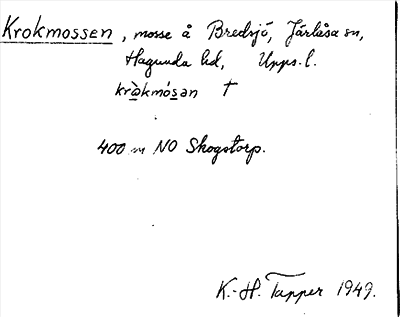 Krokmossen, mosse å Bredsjö, Järlåsa sn,
Hagunda hd, Upps. l.
kròkmó̀san †
400 m NO Skogstorp.
K.-H. Tapper 1949.